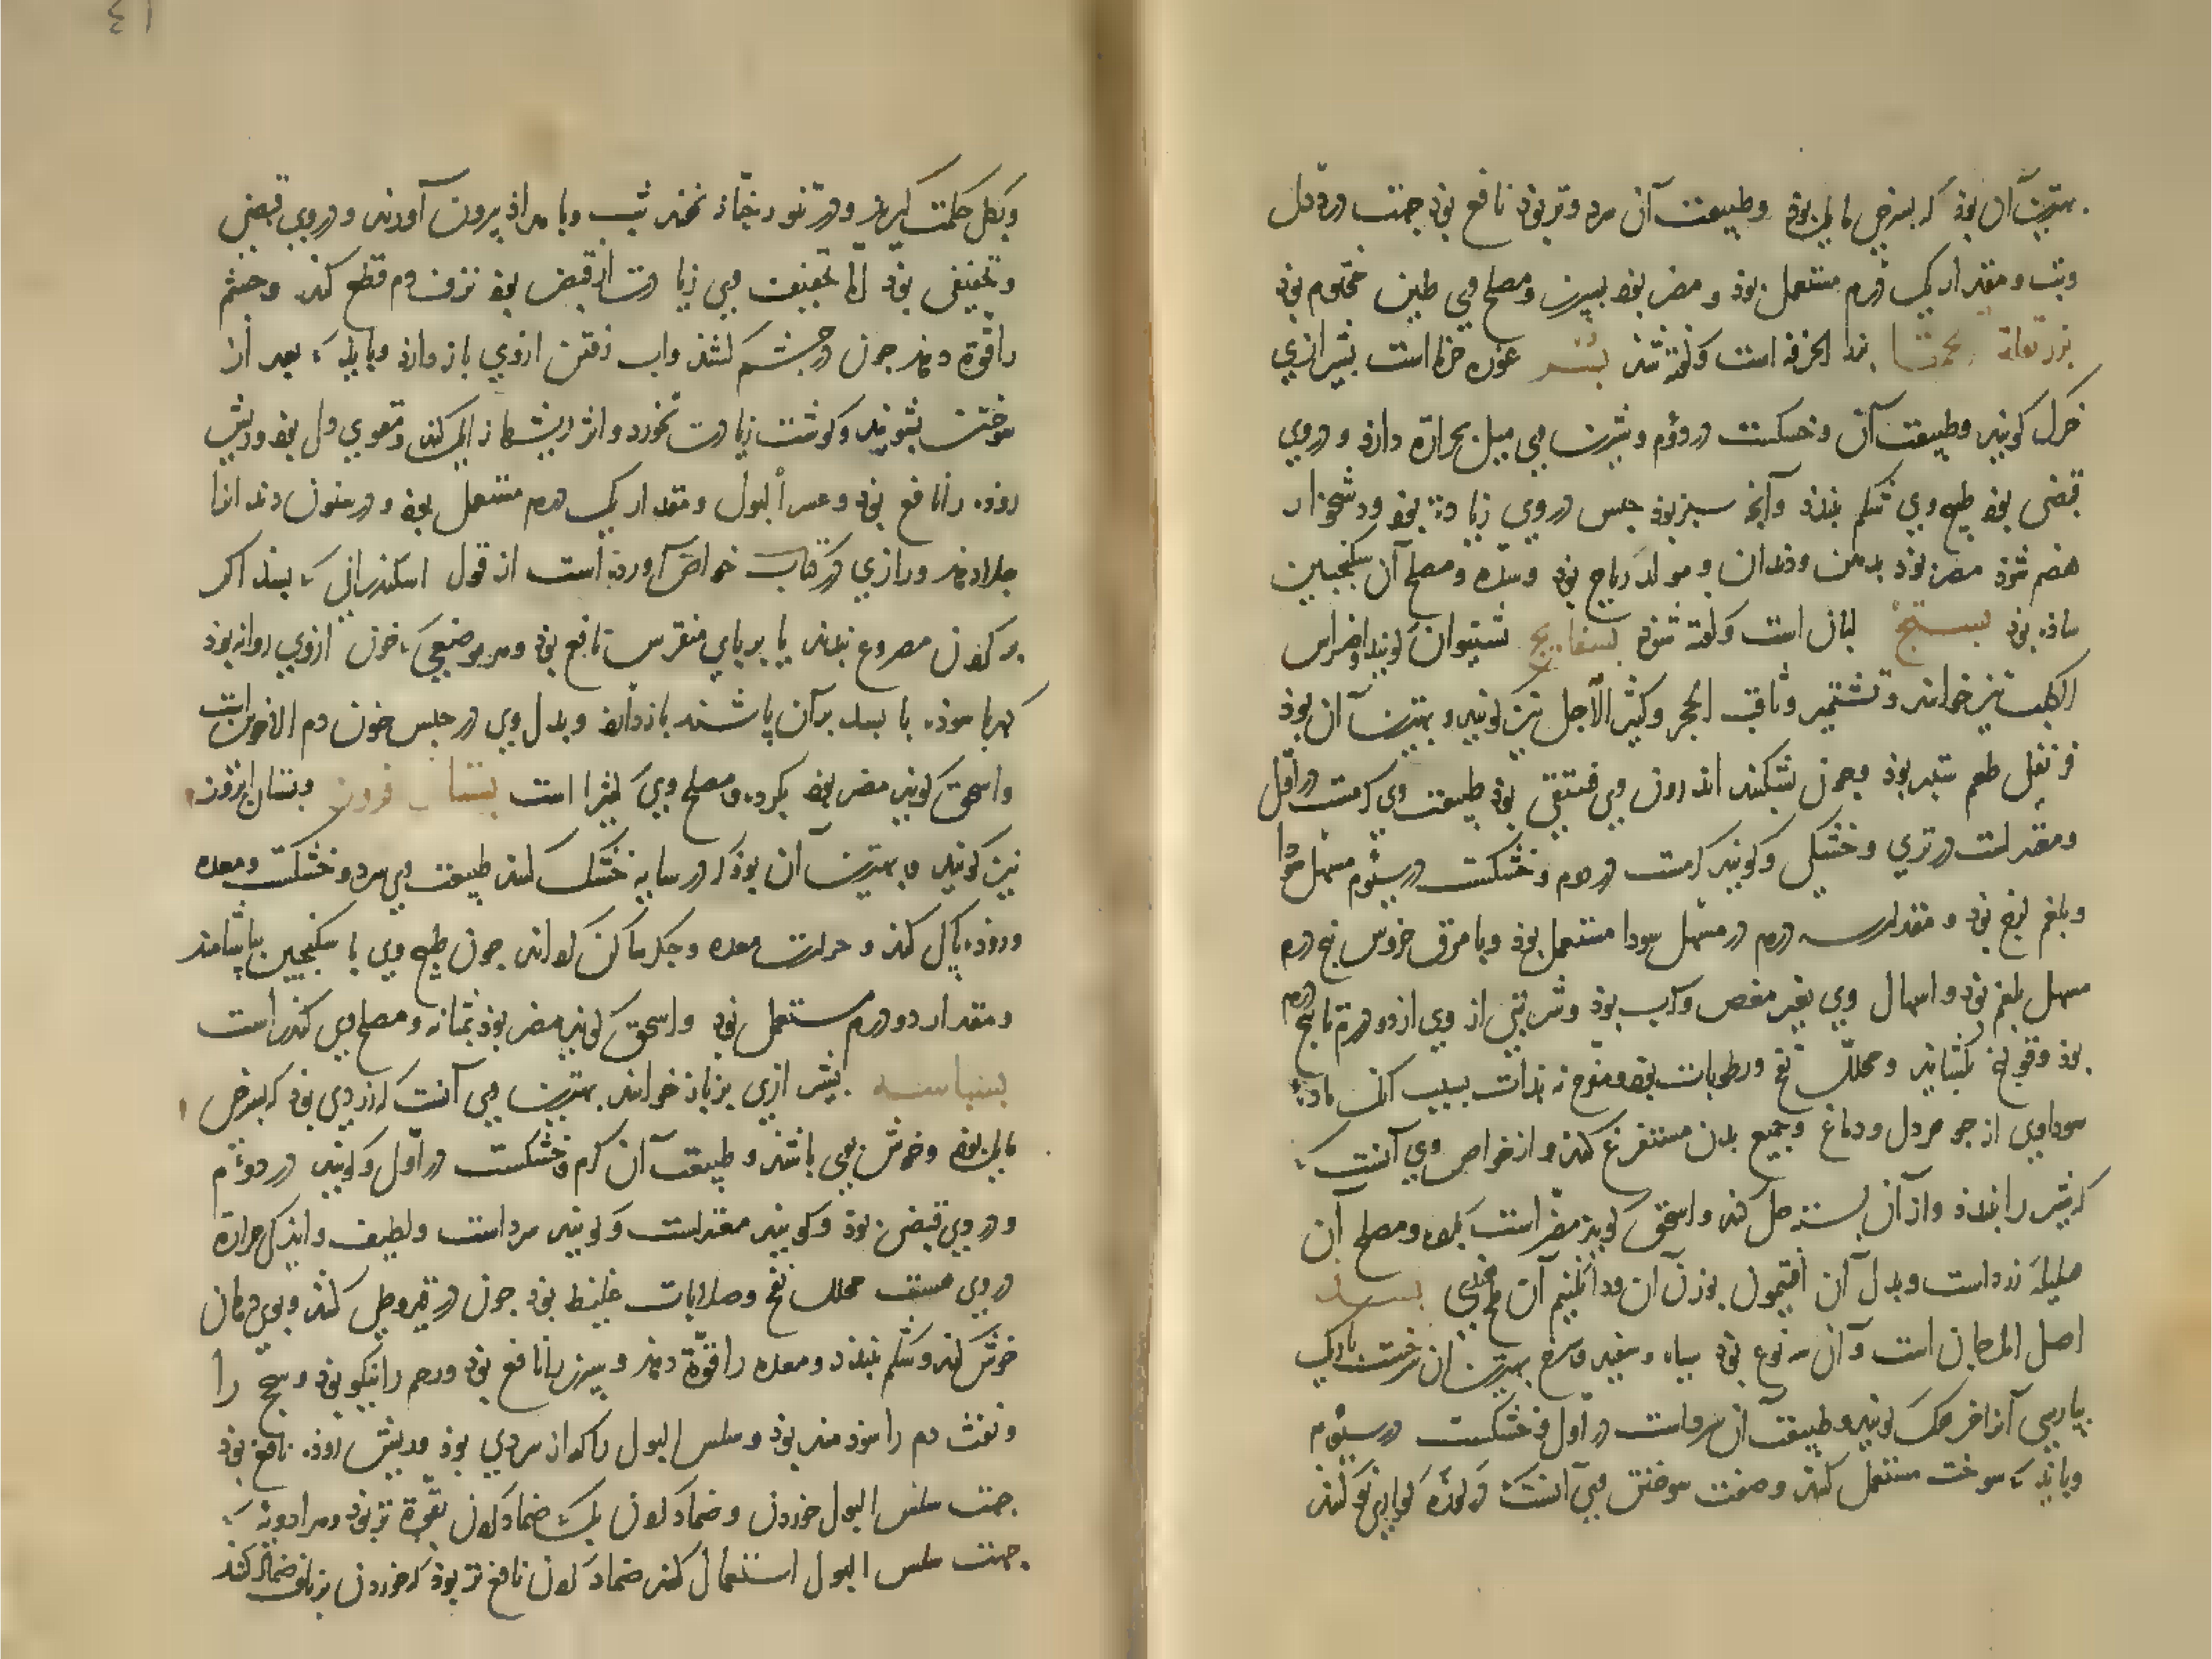 بهترین آن بوذ که بسرخی مایل بوذ و طبیعت آن سرد و تر بوذ نافع بوذ جهت درد دل
وتب و مقدار یک درم مستعمل بوذ و مضر بوذ بسپرز و مصلح وی طین مختوم بوذ
بزر بقلة الحمقا بزر الخرفه است و گفته شذ بسر غوره خرما است بشیرازی
خرک گویند و طبیعت آن خشکست در دوم و شیرین وی میل بحرارة دارذ و در وی
قبضی بوذ طبیخ وی شکم ببندذ و آنچه سبز بوذ حبس در وی زیادة بوذ و دشخوار
هضم شوذ مضر بوذ بدهن و دندان و مولد ریاح بوذ و سده و مصلح آن سکنجبین
ساذه بوذ بستج لبان است و گفته شوذ بسفایج تشتیوان گویند و اضراس
الکلب نیز خوانند و تشتمیر و ثاقب الحجر و کثیر الارجل نیز گویند و بهترین آن بوذ
قرنفل طعم ستبر بوذ و چون بشکنند اندرون وی فستقی بوذ طبیعت وی گرمست در اول
و معتدلست در تری و خشکی و گویند گرمست در دوم و خشکست در سیوم مسهل سودا
و بلغم لزج بوذ و مقدار سه درم در مسهل سودا مستعمل بوذ و با مرق خروس پنج درم
مسهل بلغم بوذ و اسهال وی بغیر مغص و کرب بوذ و شربتی از وی از دو درم تا پنج درم
بوذ و قولنج بگشایذ و محلل نفخ و رطوبات بوذ و مفرح نه بذات بسبب آنک ماده
سوداوی از جوهر دل و دماغ و جمیع بدن مستفرغ کنذ و از خواص وی آنست که
که شیر را ببندذ و از آن بسته حل کنذ و اسحق گویذ مضر است بگرده و مصلح آن
هلیله زرد است و بدل آن افتیمون بوزن آن و دانگ نیم آن ملح هندی بسد
اصل المرجان است و آن سه نوع بوذ سیاه و سفید و سرخ بهترین آن سرخست باریک
بپارسی آنرا خروهک گویند و طبیعت آن سردست در اول و خشکست در سیوم
و بایذ که سوخته مستعمل کنند و صفت سوختن وی آنست که در کوزه گواهی نو کنند
و بگل حکمت گیرند و در تنور خباز نهند شب و بامداذ بیرون آورند و در وی قبضی
و تجفیفی بوذ اما تجفیف وی زیادت از قبض بوذ نزف دم قطع کند و چشم
را قوة دهذ چون در چشم کشند و اب رفتن ازوی باز دارذ و بایذ که بعد از
سوختن بشویند و گوشت زیادت بخورد و اثر ریشها زایل کند و مقوی دل بوذ و ریش
روده را نافع بوذ و عسر البول و مقدار یک درم مستعمل بوذ و در سنون دندانرا
جلا دهذ و رازی در کتاب خواص آورده است از قول اسکندرانی که بسد اگر
بر گردن مصروع بندند یا بر پای منقرس نافع بوذ و هر موضعی که خون ازوی روانه بوذ
کهربا سوذه با بسد بر آن پاشند باز دارذ و بدل وی در حبس خون دم الاخوین است
و اسحق گویذ مضر بوذ بگرده و مصلح وی کثیرا است بستان افروز و بستان ابروز
نیز گویند و بهترین آن بوذ که در سایه خشک کنند طبیعت وی سرد و خشکست و معده
و روده پاک کنذ و حرارت معده و جگر ساکن گرداند چون طبیخ وی با سکنجبین بیاشامند
و مقدار دو درم مستعمل بوذ و اسحق گویذ مضر بوذ بمثانه و مصلح وی کندر است
بسباسه بشیرازی بزباز خوانند بهترین وی آنست که زردی بوذ که بسرخی
مایل بوذ و خوش بوی باشذ و طبیعت آن گرم و خشکست در اول و گویند در دوم
و در وی قبضی بوذ و گویند معتدلست و گویند سرد است و لطیف و اندک حرارة
در وی هست محلل نفخ و صلابات غلیظ بوذ چون در قیروطی کنند و بوی دهان
خوش کند و شکم ببندد و معده را قوة دهذ و سپرز را نافع بوذ و رحم را نیکو بوذ و سحج را
و نفث دم را سودمند بوذ و سلس البول را که از سردی بوذ و ریش روده نافع بوذ
جهت سلس البول خوردن و ضماد کردن لیک ضماد کردن بقوة تر بوذ و هر ادویه که
جهت سلس البول استعمال کنند ضماد کردن نافع تر بوذ که خوردن بر ناف ضماد کنند